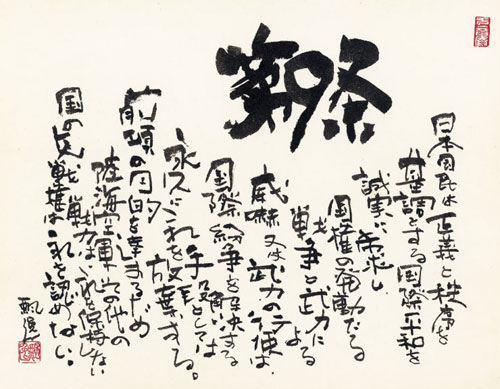 第9条
日本国民は正義と秩序を
基調とする国際平和を
誠実に希求し
国権の発動たる
戦争と武力による
威嚇又は武力の行使は、
国際紛争を解決する
手段としては
永久にこれを放棄する。
前項の目的を達するため
陸海空軍その他の
戦力はこれを保持しない
国の交戦権はこれを認めない。